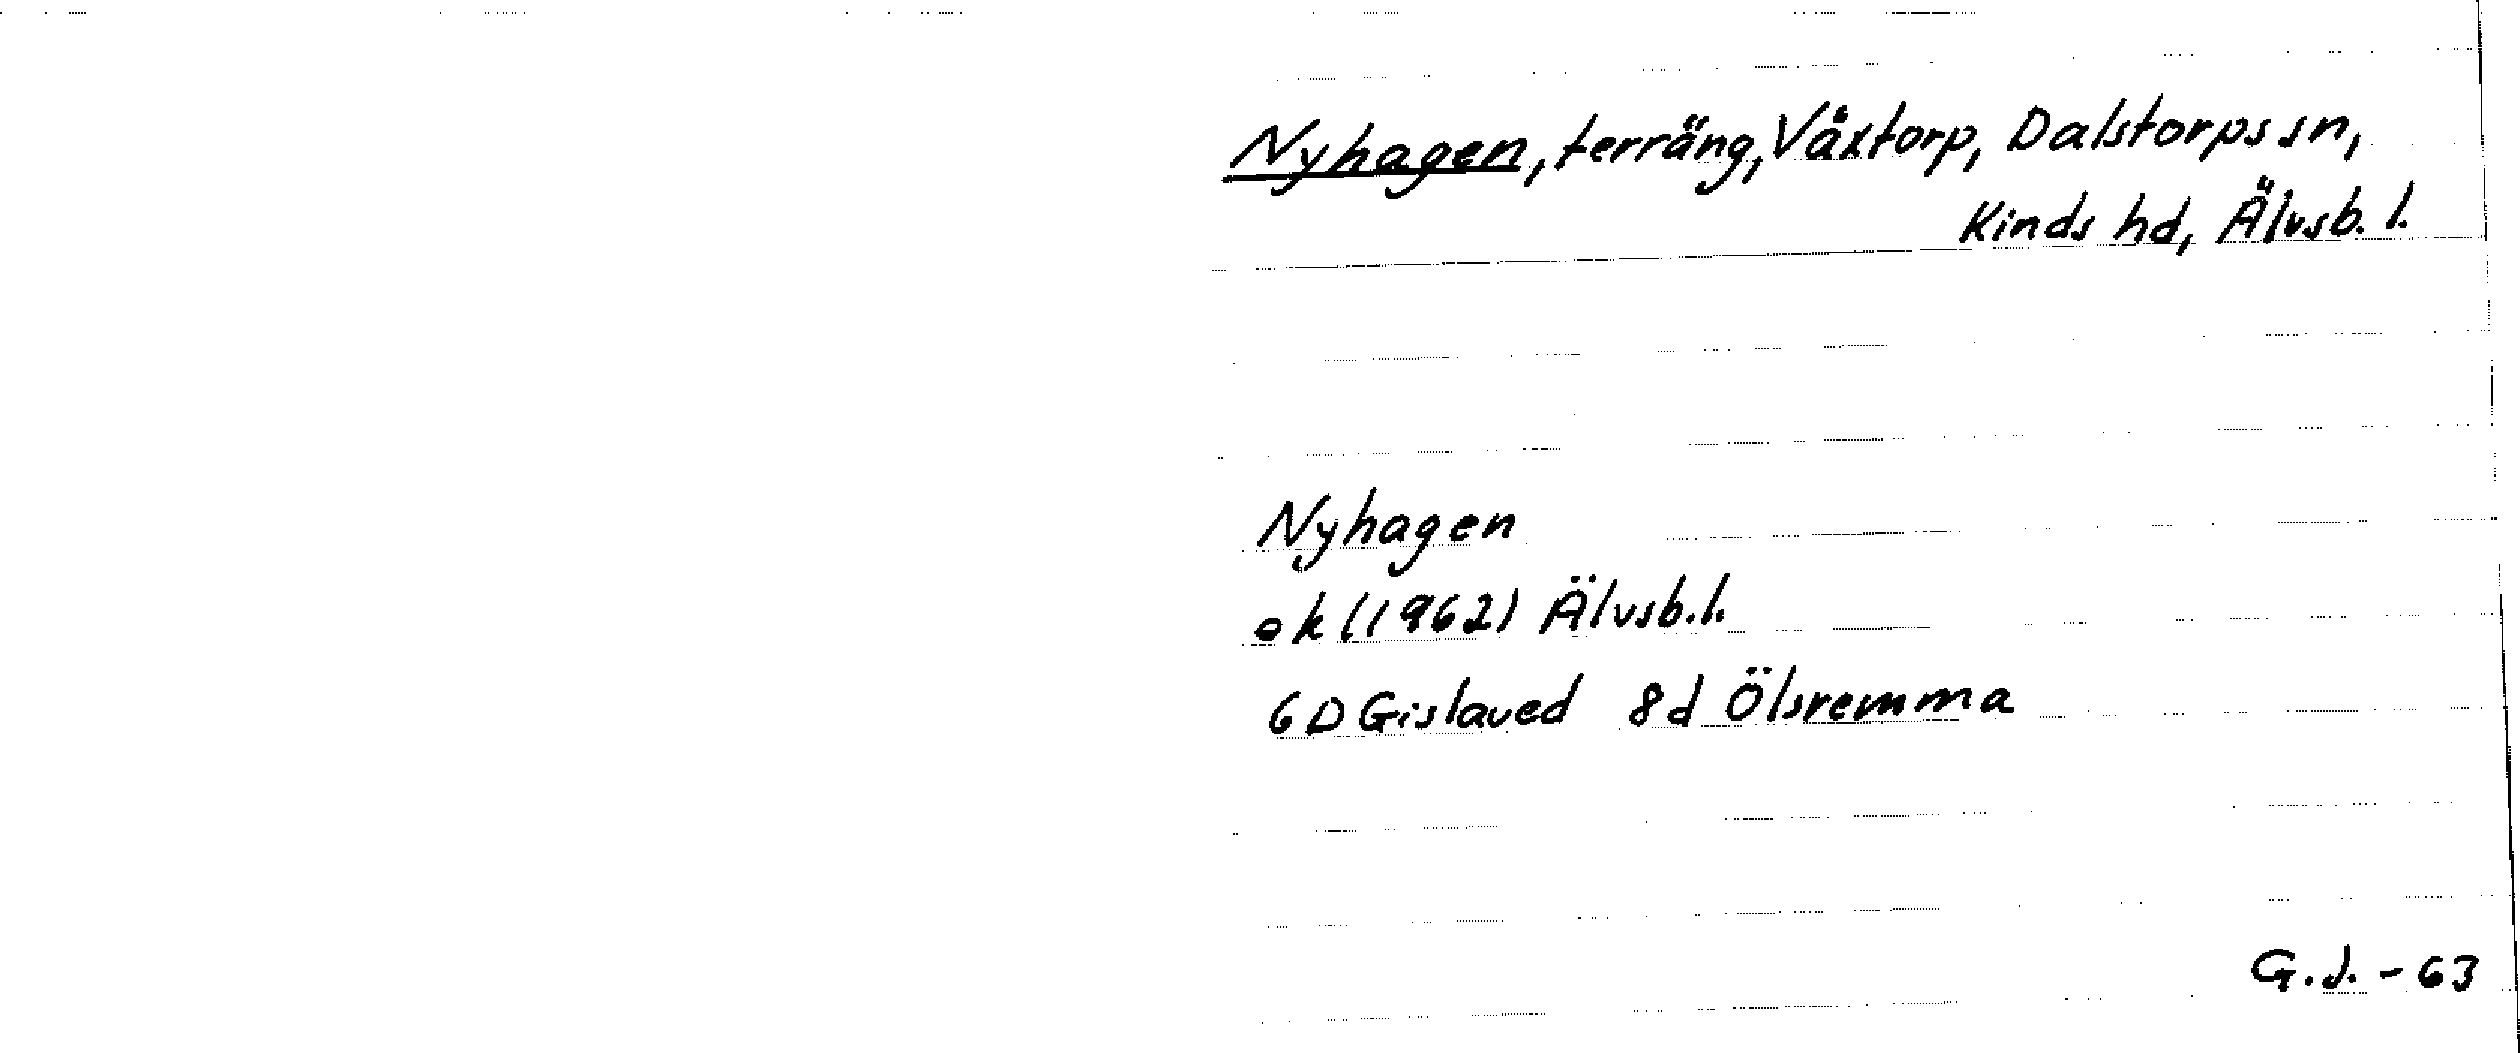 Nyhagen, terräng, Våxtorp, Dalstorps sn,
Kinds hd, Älvsb. l.
Nyhagen
ek (1962) Älvsb. l.
6D Gislaved 8d Ölsremma
G. J. - 63